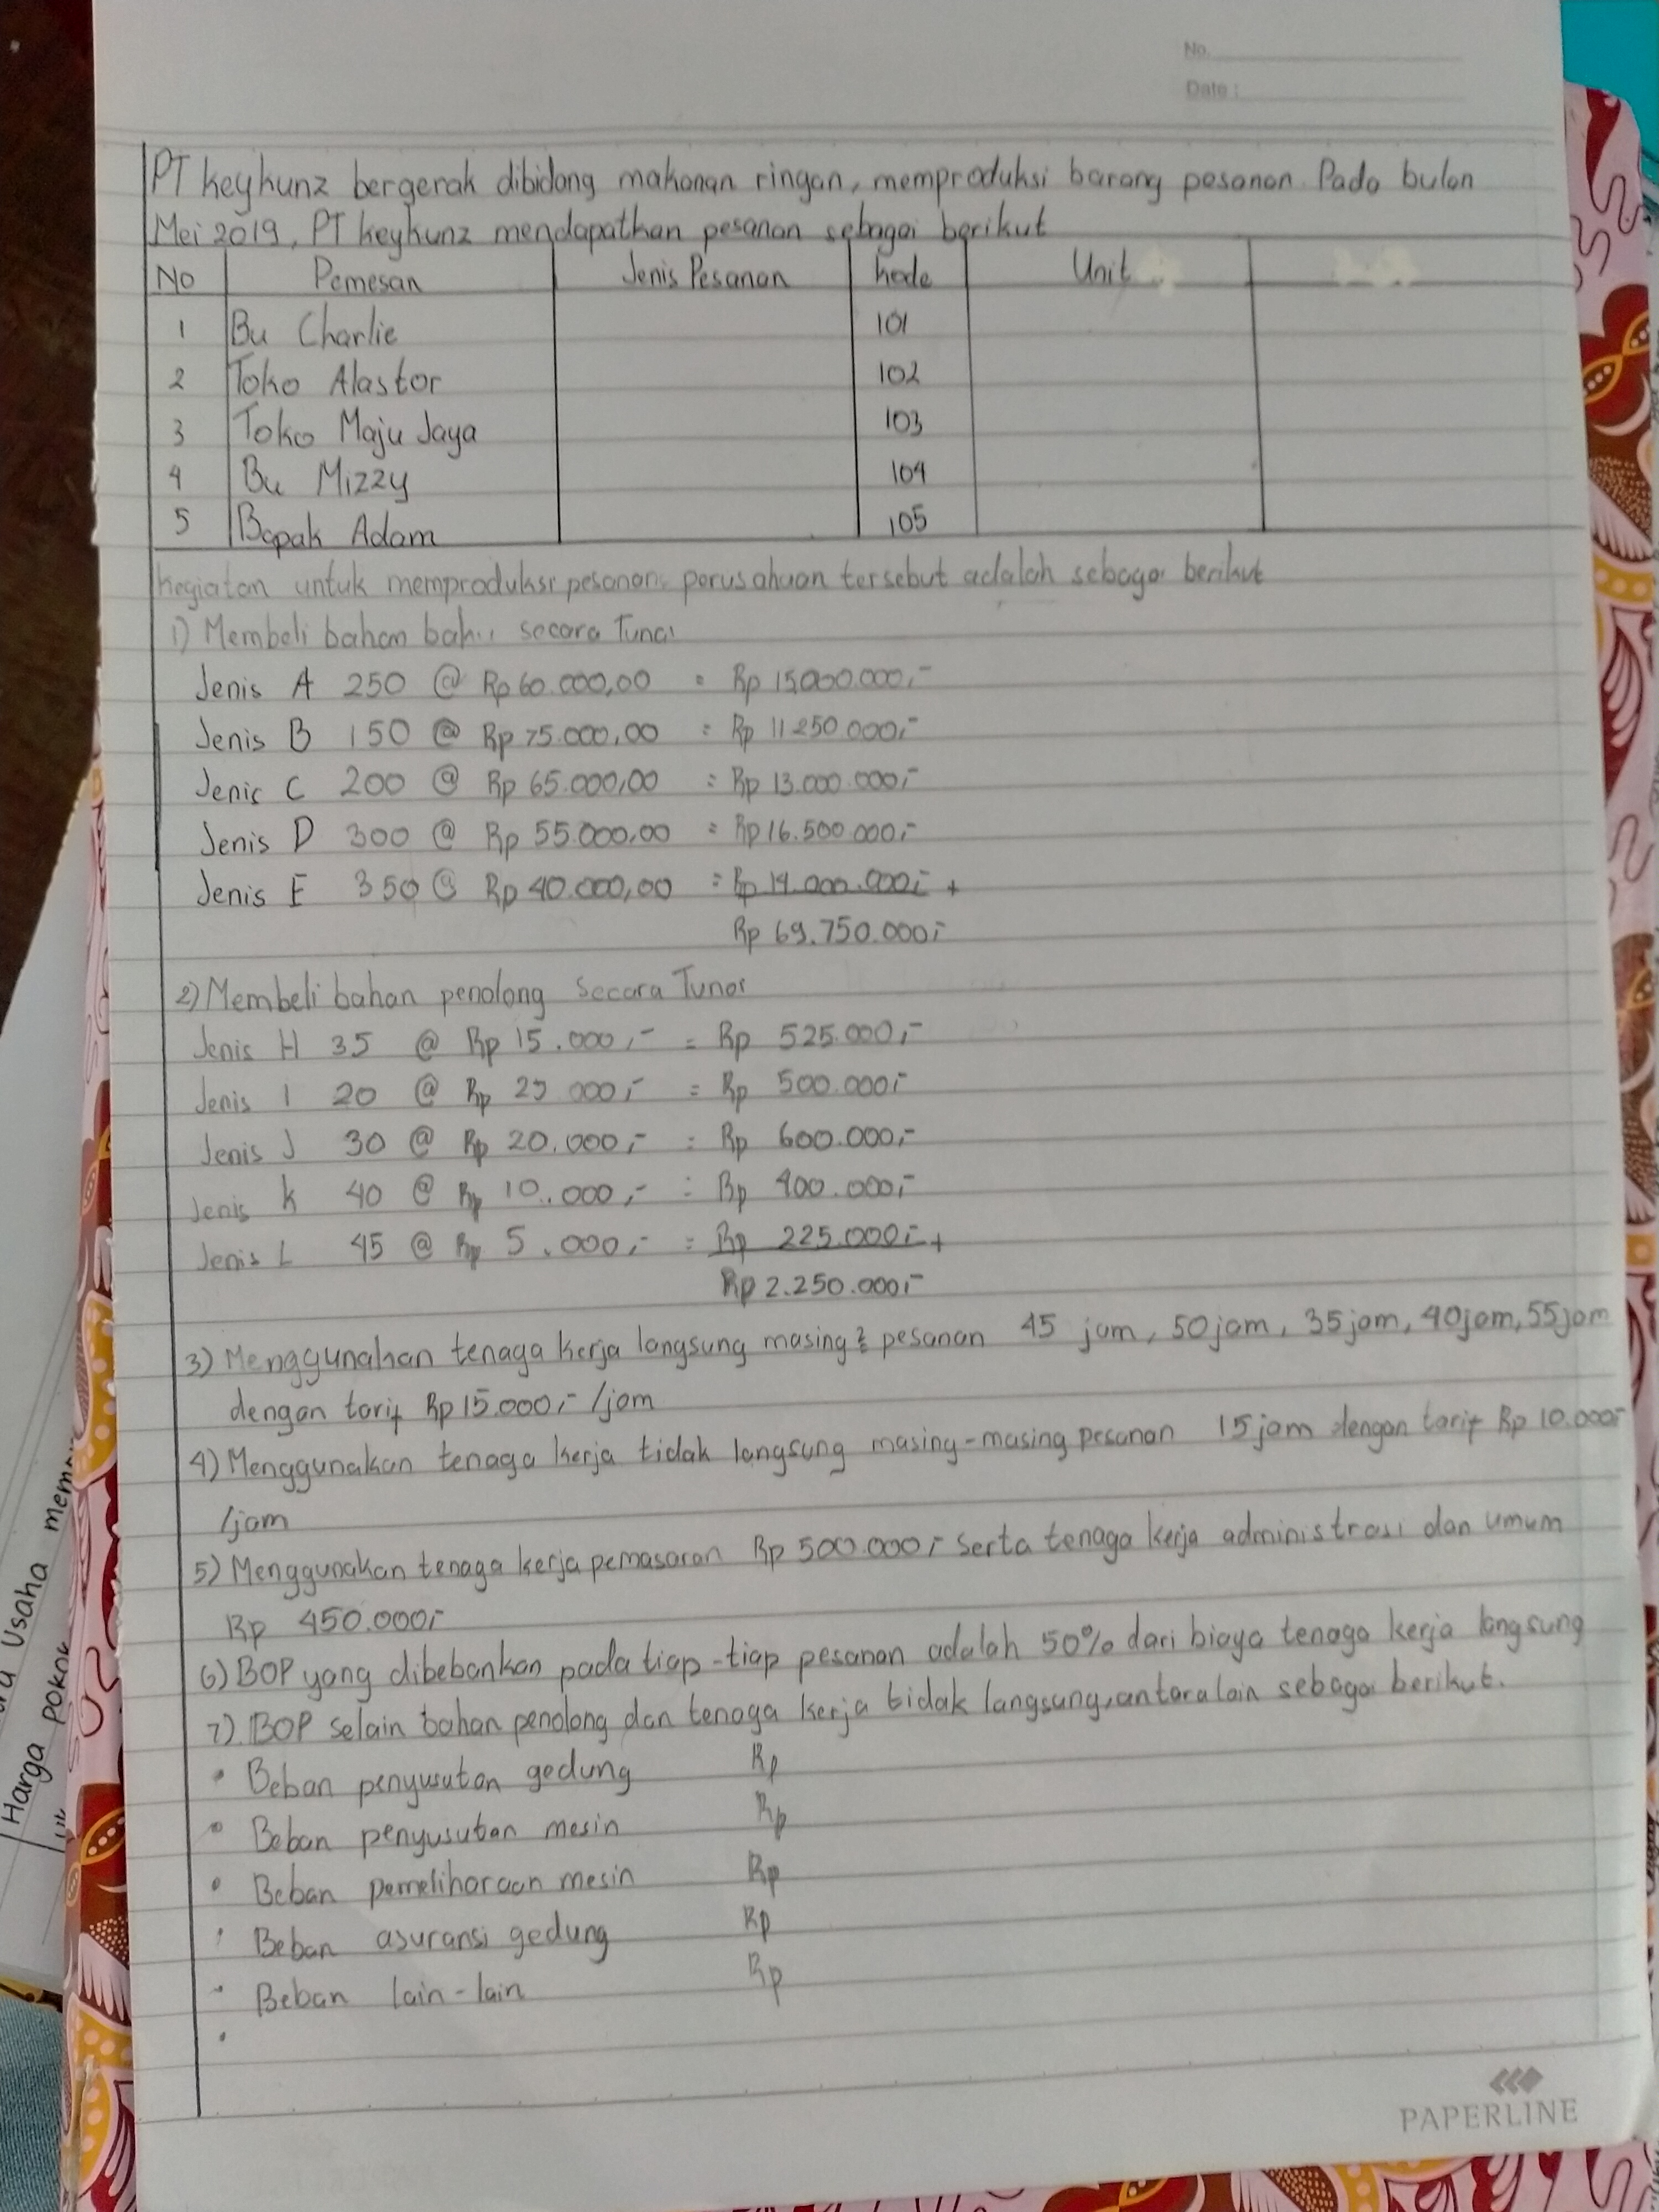 No.
Date :
PT keykunz bergerak dibidang makanan ringan, memproduksi barang pesanan. Pada bulan
Mei 2019, PT keykunz mendapatkan pesanan sebagai berikut
No Pemesan Jenis Pesanan kode Unit
1 Bu Charlie 101
2 Toko Alastor 102
3 Toko Maju Jaya 103
4 Bu Mizzy 104
5 Bapak Adam 105
kegiatan untuk memproduksi pesanan perusahaan tersebut adalah sebagai berikut
1) Membeli bahan baku secara Tunai
Jenis A 250 @ Rp 60.000,00 = Rp 15.000.000,-
Jenis B 150 @ Rp 75.000,00 = Rp 11.250.000,-
Jenis C 200 @ Rp 65.000,00 = Rp 13.000.000,-
Jenis D 300 @ Rp 55.000,00 = Rp 16.500.000,-
Jenis E 350 @ Rp 40.000,00 = Rp 14.000.000,- +
Rp 69.750.000,-
2) Membeli bahan penolong secara Tunai
Jenis H 35 @ Rp 15.000,- = Rp 525.000,-
Jenis I 20 @ Rp 25.000,- = Rp 500.000,-
Jenis J 30 @ Rp 20.000,- = Rp 600.000,-
Jenis k 40 @ Rp 10.000,- = Rp 400.000,-
Jenis L 45 @ Rp 5.000,- = Rp 225.000,- +
Rp 2.250.000,-
3) Menggunakan tenaga kerja langsung masing² pesanan 45 jam, 50 jam, 35 jam, 40 jam, 55 jam
dengan tarif Rp 15.000,- /jam
4) Menggunakan tenaga kerja tidak langsung masing-masing pesanan 15 jam dengan tarif Rp 10.000,-
/jam
5) Menggunakan tenaga kerja pemasaran Rp 500.000,- serta tenaga kerja administrasi dan umum
Rp 450.000,-
6) BOP yang dibebankan pada tiap-tiap pesanan adalah 50% dari biaya tenaga kerja langsung
7). BOP selain bahan penolong dan tenaga kerja tidak langsung, antara lain sebagai berikut.
• Beban penyusutan gedung Rp
• Beban penyusutan mesin Rp
• Beban pemeliharaan mesin Rp
• Beban asuransi gedung Rp
• Beban lain-lain Rp
•
PAPERLINE
Usaha
Harga pokok